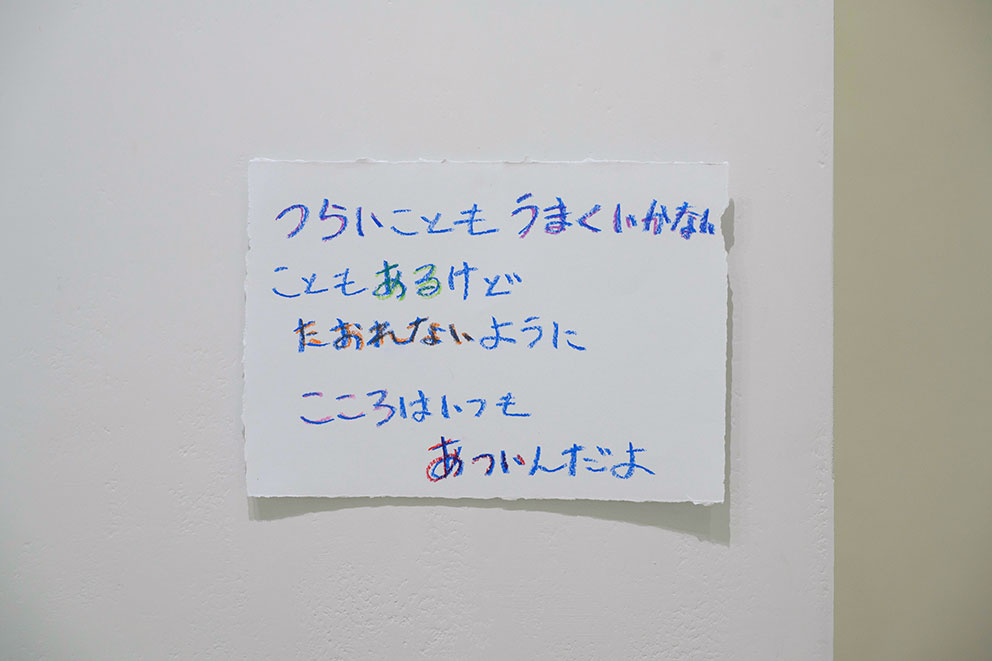 つらいことも うまくいかない
こともあるけど
たおれないように
こころはいつも
あついんだよ